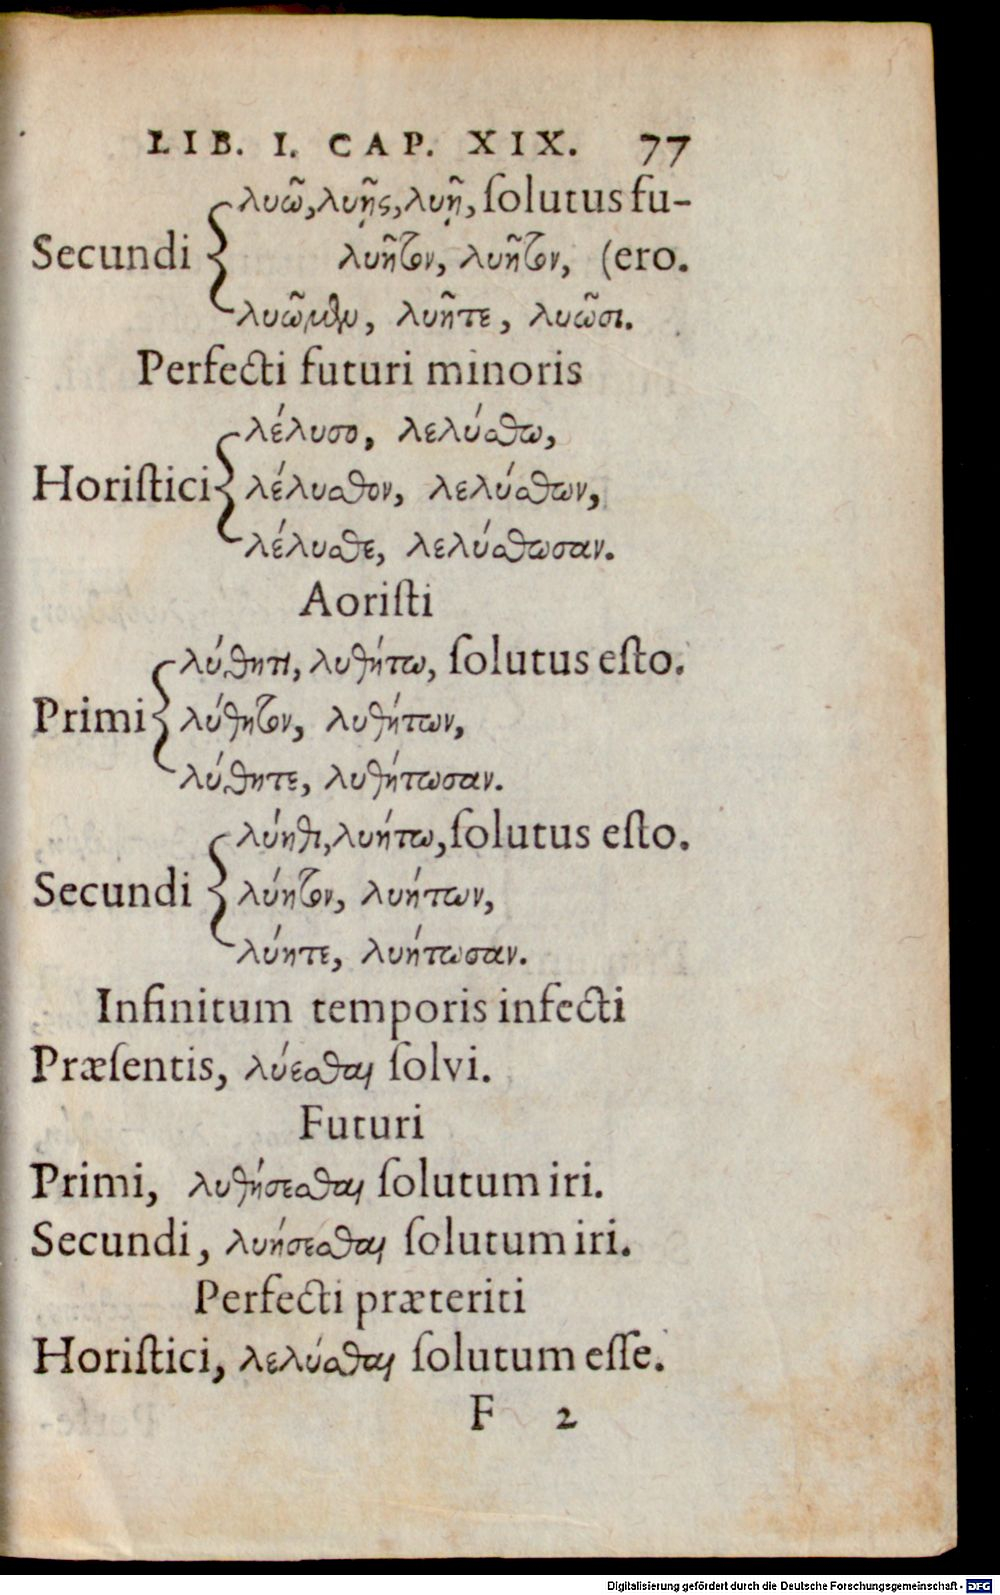 LIB. I. CAP. XIX. 77
λυῶ, λυῇς, λυῇ, ſolutus fu-
Secundi λυῆτον, λυῆτον, (ero.
λυῶμεν, λυῆτε, λυῶσι.
Perfecti futuri minoris
λέλυσο, λελύσθω,
Horiſtici λέλυσθον, λελύσθων,
λέλυσθε, λελύσθωσαν.
Aoriſti
λύθητι, λυθήτω, ſolutus eſto.
Primi λύθητον, λυθήτων,
λύθητε, λυθήτωσαν.
λύηθι, λυήτω, ſolutus eſto.
Secundi λύητον, λυήτων,
λύητε, λυήτωσαν.
Infinitum temporis infecti
Præſentis, λύεσθαι ſolvi.
Futuri
Primi, λυθήσεσθαι ſolutum iri.
Secundi, λυήσεσθαι ſolutum iri.
Perfecti præteriti
Horiſtici, λελύσθαι ſolutum eſſe.
F 2
Digitalisierung gefördert durch die Deutsche Forschungsgemeinschaft - DFG